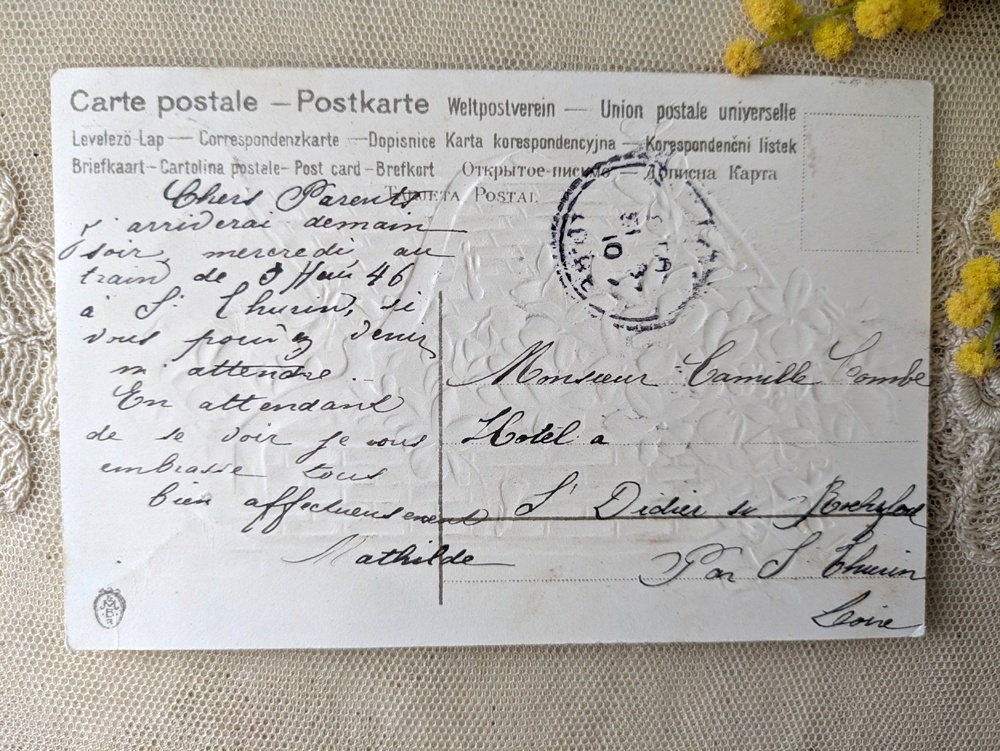 Carte postale — Postkarte Weltpostverein — Union postale universelle
Levelező-Lap — Correspondenzkarte — Dopisnice Karta korespondencyjna — Korespondenčni listek
Briefkaart - Cartolina postale - Post card - Brefkort Открытое-письмо — Дописна Карта
TARJETA POSTAL
Chers Parents
j'arriverai demain
soir, mercredi au
train de 46
à St Thurin, si
vous pouvez venir
m'attendre.
En attendant
de se voir je vous
embrasse tous
bien affectueusement
Mathilde
Monsieur Camille Combe
Hotel a
St Didier su Rochefort
Par St Thurin
Loire